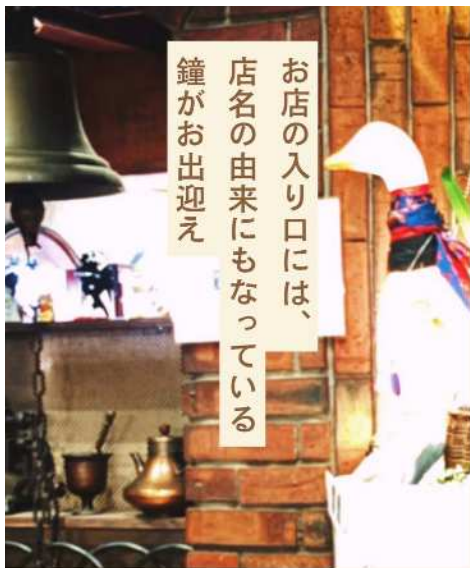 お店の入り口には、
店名の由来にもなっている
鐘がお出迎え